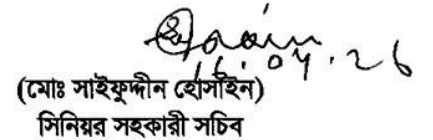 16.04.26
(মোঃ সাইফুদ্দীন হোসাইন)
সিনিয়র সহকারী সচিব